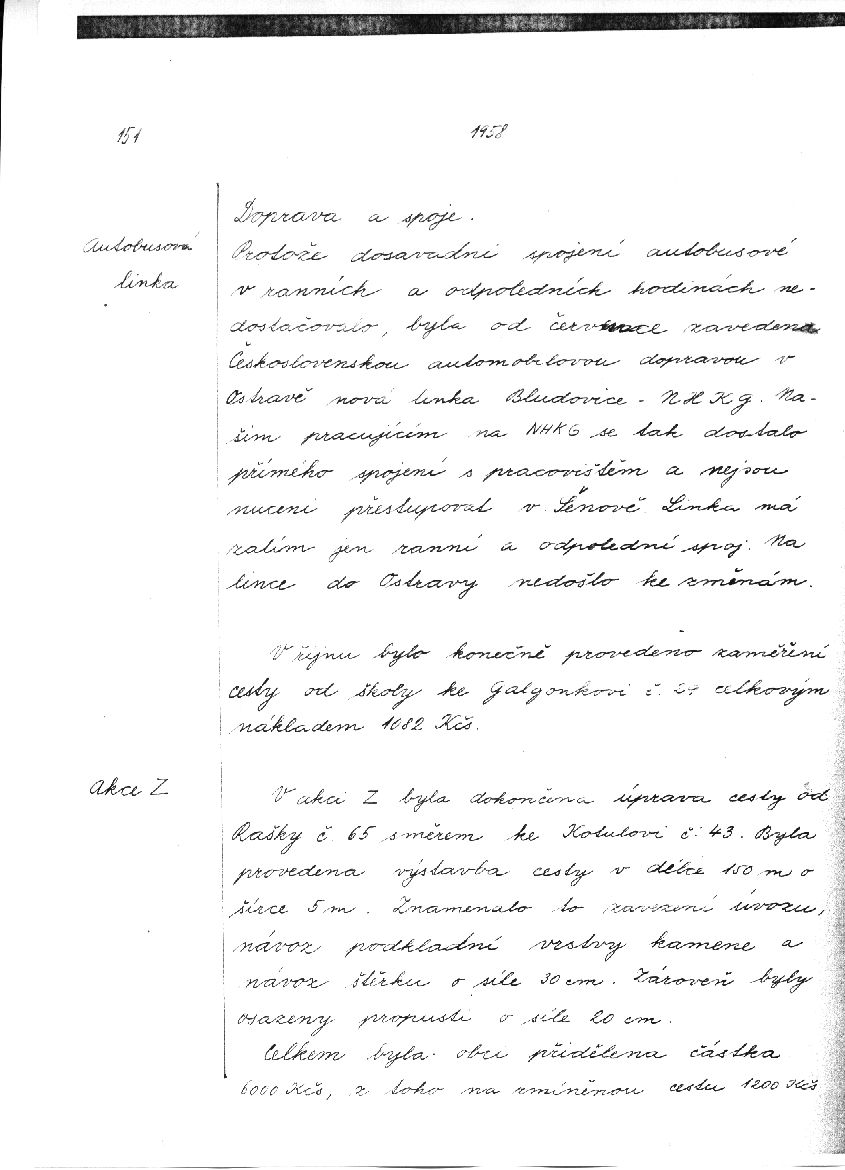 151
1958
Doprava a spoje.
Autobusová
linka
Protože dosavadní spojení autobusové
v ranních a odpoledních hodinách ne-
dostačovalo, byla od července zavedena
Československou automobilovou dopravou v
Ostravě nová linka Bludovice - NHKG. Na-
šim pracujícím na NHKG se tak dostalo
přímého spojení s pracovištěm a nejsou
nuceni přestupovat v Šenově. Linka má
zatím jen ranní a odpolední spoj. Na
lince do Ostravy nedošlo ke změnám.
V říjnu bylo konečně provedeno zaměření
cesty od školy ke Galgonkovi č. 29 celkovým
nákladem 1082 Kčs.
Akce Z
V akci Z byla dokončena úprava cesty od
Rašky č. 65 směrem ke Kotulovi č. 43. Byla
provedena výstavba cesty v délce 150 m o
šířce 5 m. Znamenalo to zavezení úvozu,
návoz podkladní vrstvy kamene a
návoz štěrku o síle 30 cm. Zároveň byly
osazeny propusti o síle 20 cm.
Celkem byla obci přidělena částka
6000 Kčs, z toho na zmíněnou cestu 1200 Kčs